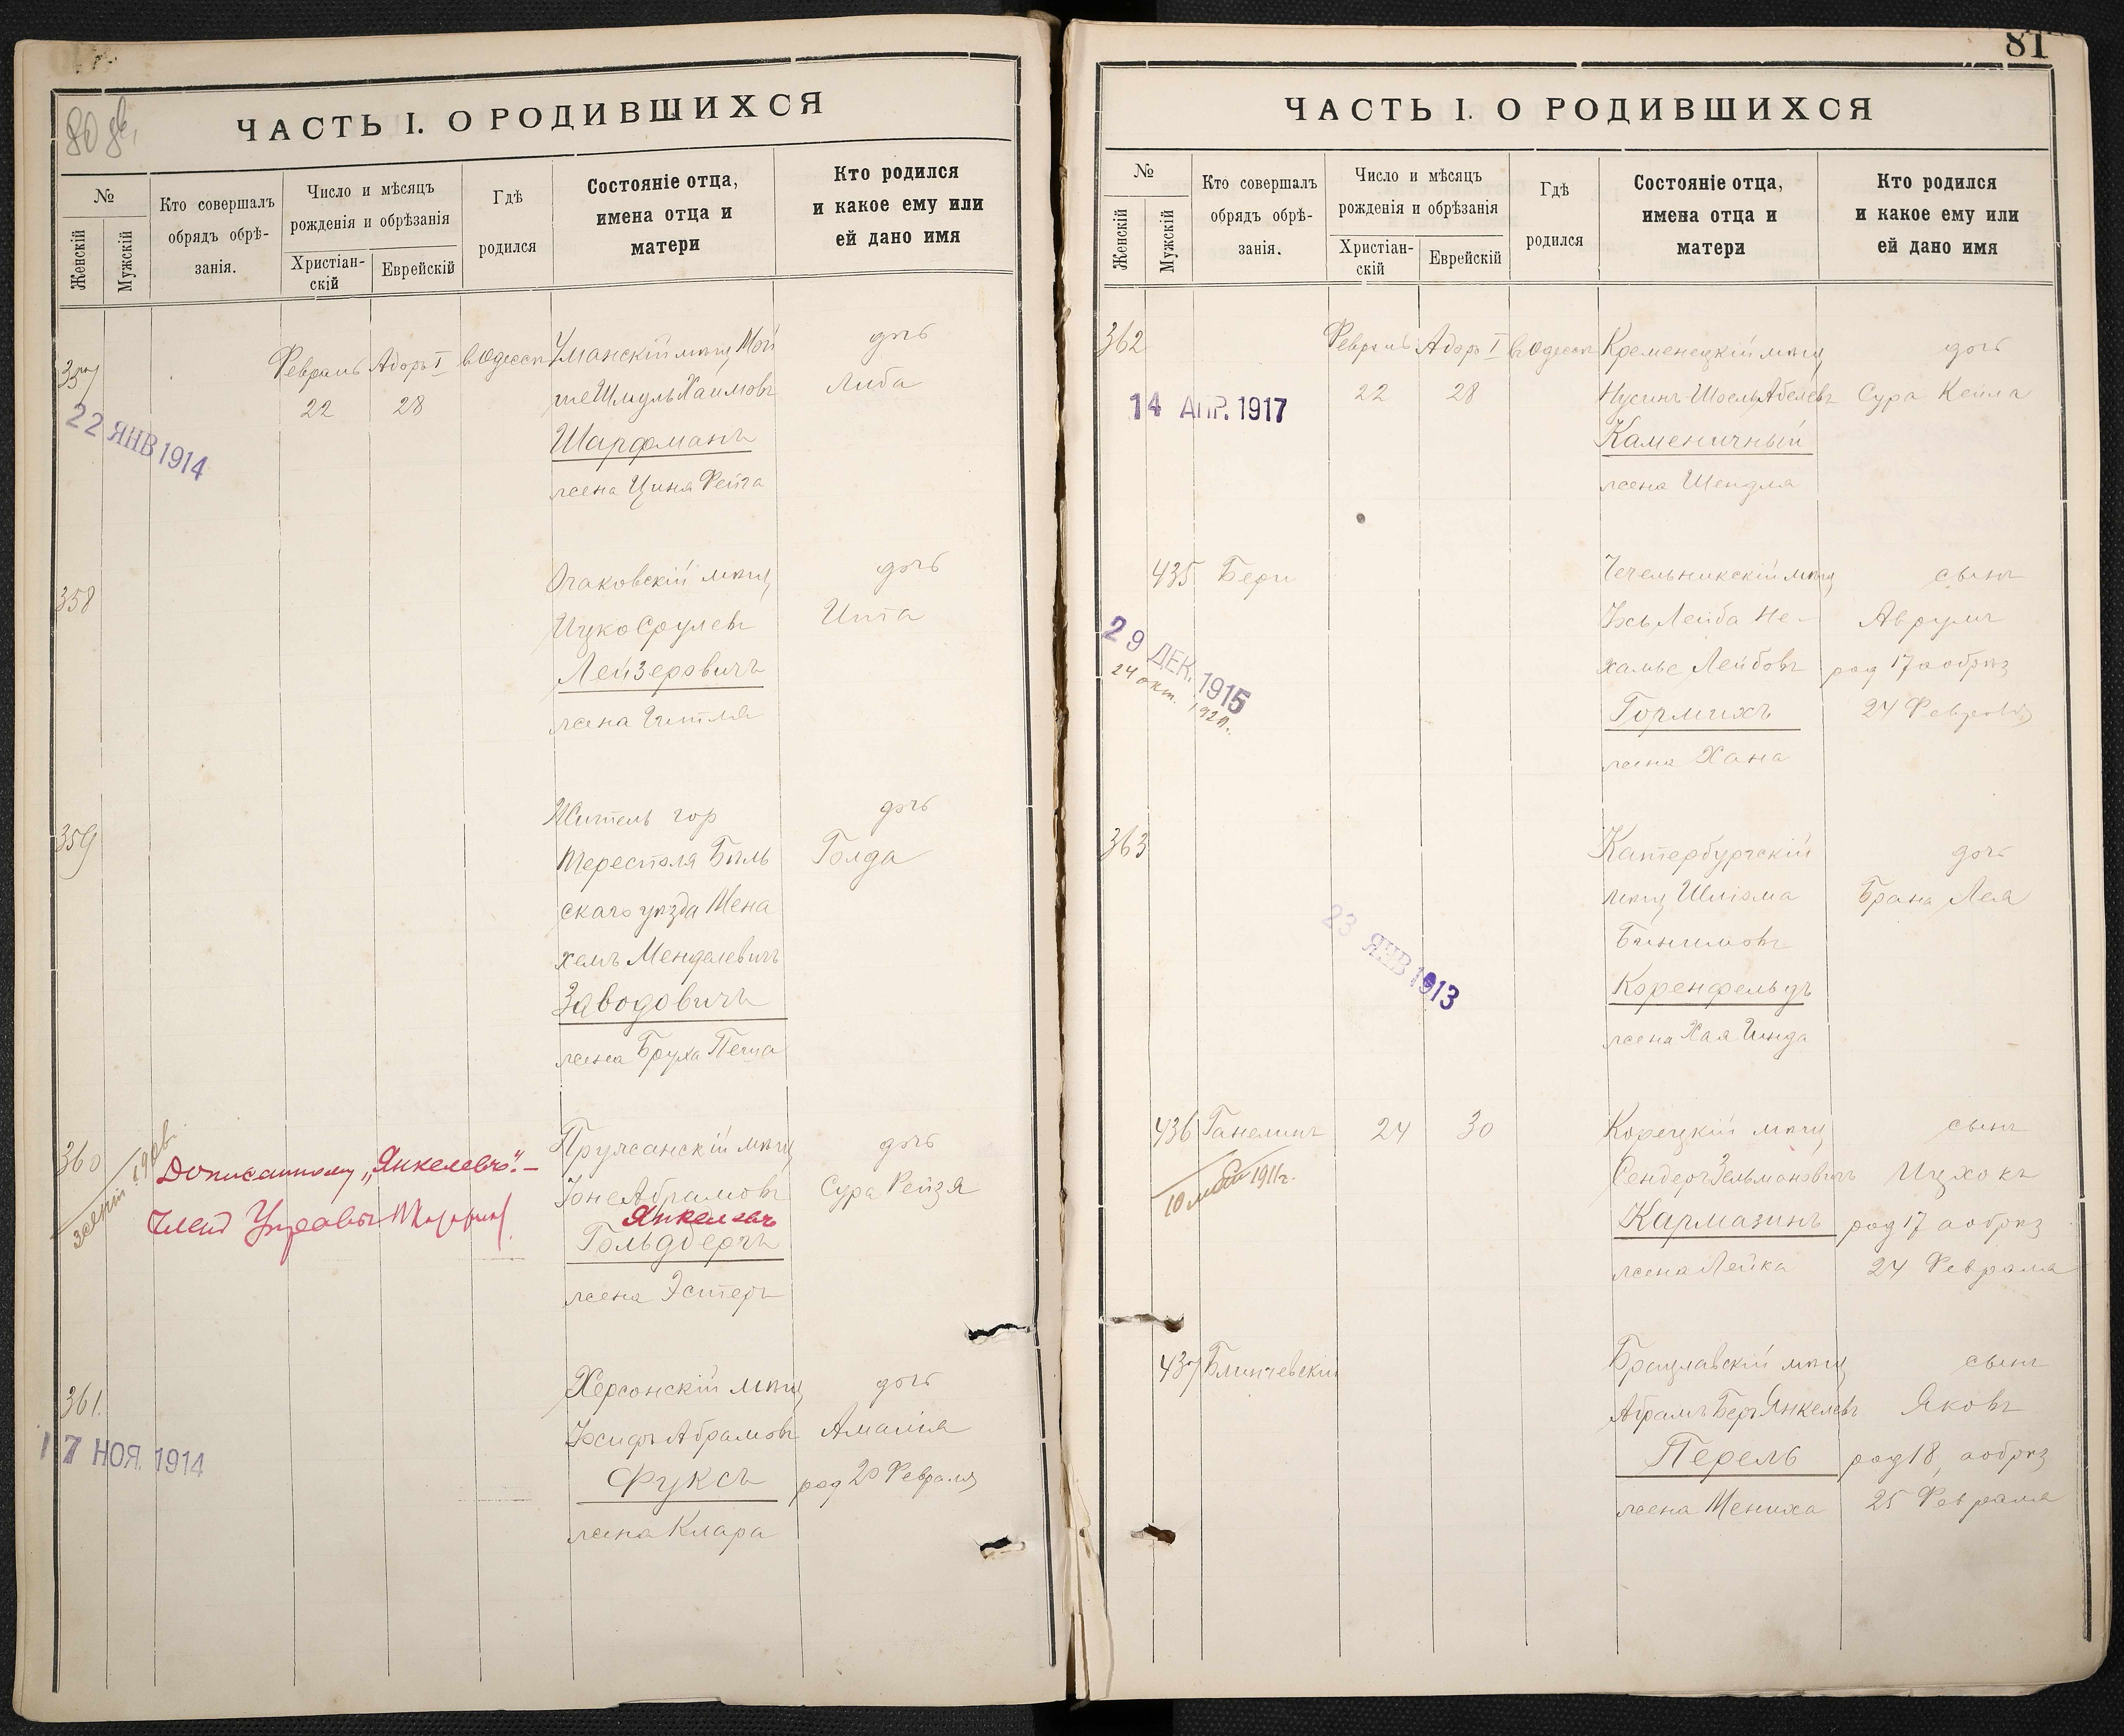 80 об.
ЧАСТЬ I. О РОДИВШИХСЯ
№
Женскій
Мужскій
Кто совершалъ
обрядъ обрѣ-
занія.
Число и мѣсяцъ
рожденія и обрѣзанія
Христіан-
скій
Еврейскій
Гдѣ
родился
Состояніе отца,
имена отца и
матери
Кто родился
и какое ему или
ей дано имя
357
22 ЯНВ 1914
Февраль Адоръ I въ Одессѣ
22 28
Уманскій мѣщ Мой
ше Шмуль Хаимовъ
Шарфманъ
жена Циня Фейга
дочь
Либа
358
Очаковскій мѣщ
Ицко Срулевъ
Лейзеровичъ
жена Гитля
дочь
Ита
359
Житель гор
Тересполя Бѣль
скаго уѣзда Мена
хемъ Менделевичъ
Заводовичъ
жена Бруха Песша
дочь
Голда
360
Дописанному „Янкелевъ". —
Членъ Управы
Пружанскій мѣщ
Іоне Абрамовъ
Янкелевъ
Гольдбергъ
жена Эстеръ
дочь
Сура Рейзя
361.
17 НОЯ. 1914
Херсонскій мѣщ
Іосифъ Абрамовъ
Фуксъ
жена Клара
дочь
Амалія
род 20 Февраля
81
ЧАСТЬ I. О РОДИВШИХСЯ
№
Женскій
Мужскій
Кто совершалъ
обрядъ обрѣ-
занія.
Число и мѣсяцъ
рожденія и обрѣзанія
Христіан-
скій
Еврейскій
Гдѣ
родился
Состояніе отца,
имена отца и
матери
Кто родился
и какое ему или
ей дано имя
362
14 АПР. 1917
Февраль Адоръ I въ Одессѣ
22 28
Кременецкій мѣщ
Нусинъ Шоель Абелевъ
Каменичный
жена Шендля
дочь
Сура Кейла
435 Бери
29 ДЕК. 1915
24 окт. 1920
Чечельникскій мѣщ
Іось Лейба Не-
хамье Лейбовъ
Гормихъ
жена Хана
сынъ
Аврумъ
род 17 а обрѣз
24 Февраля
363
23 ЯНВ 1913
Катербургскій
мѣщ Шліома
Бинимовъ
Коренфельдъ
жена Хая Гинда
дочь
Брана Лея
436 Ганелинъ 24 30
10 1911г.
Корецкій мѣщ
Сендеръ Зельмановичъ
Кармазинъ
жена Лейка
сынъ
Ицхокъ
род 17 а обрѣз
24 Февраля
437
Брацлавскій мѣщ
Абрамъ Беръ Янкелевъ
Перель
жена Мениха
сынъ
Яковъ
род 18, а обрѣз
25 Февраля